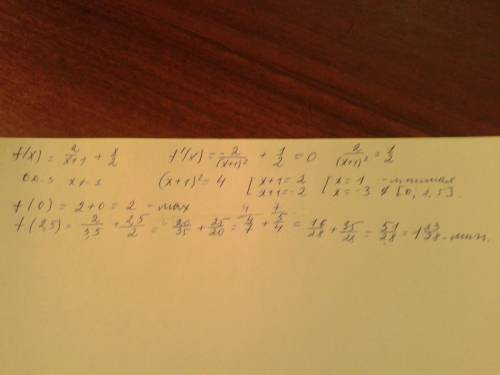 f(x) = 2/(x+1) + x/2   f'(x) = -2/(x+1)² + 1/2 = 0   2/(x+1)² = 1/2
x ≠ -1   (x+1)² = 4   [ x+1 = 2   [ x = 1
x+1 = -2   x = -3 ∉ [0, 2,5].
f(0) = 2+0 = 2 - max
f(2,5) = 2/3,5 + 2,5/2 = 20/35 + 25/20 = 4/7 + 5/4 = 16/28 + 35/28 = 51/28 = 1 23/28 - мин.